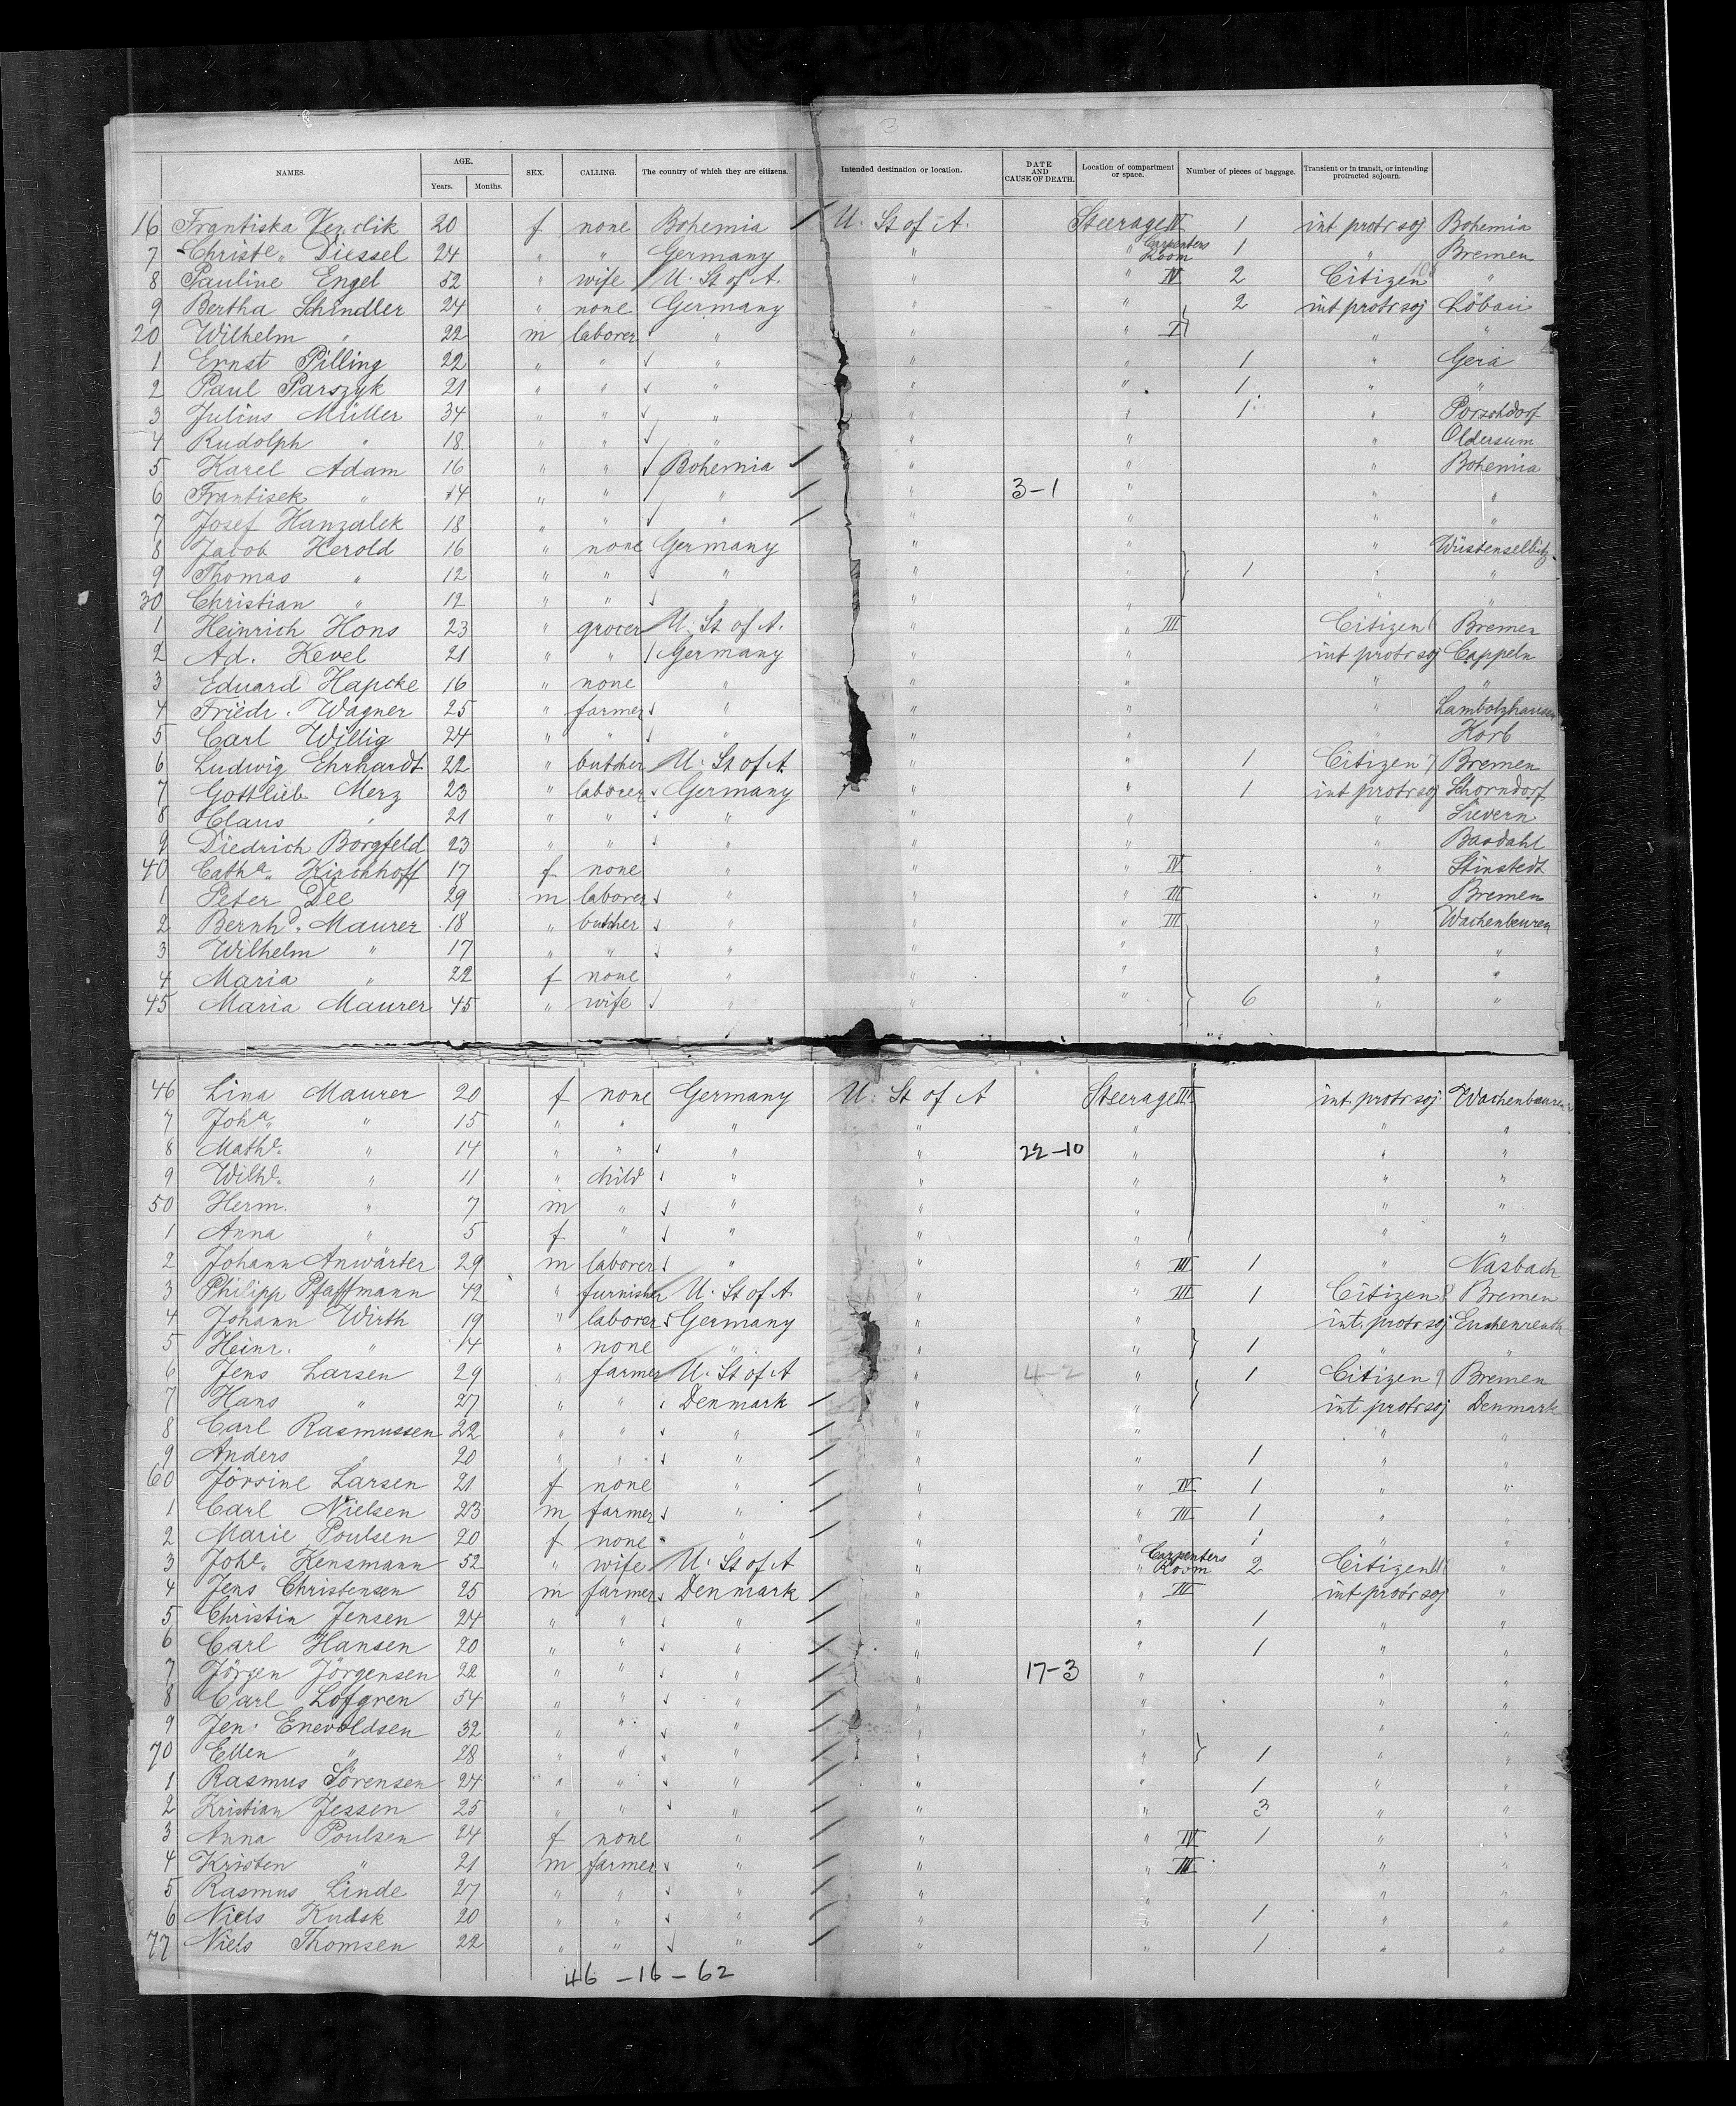 3
NAMES. AGE. Years. Months. SEX. CALLING. The country of which they are citizens. Intended destination or location. DATE AND CAUSE OF DEATH. Location of compartment or space. Number of pieces of baggage. Transient or in transit, or intending protracted sojourn.
16 Frantiska 20 f none Bohemia / U. St of A. Steerage IV 1 int protr soj Bohemia
7 Christe. Diessel 24 " " Germany " " Carpenters Room 1 " Bremen
8 Pauline Engel 52 " wife U. St of A. " " IV 2 Citizen "
9 Bertha Schindler 24 " none Germany " " 2 int protr soj Löbau
20 Wilhelm " 22 m laborer " " " I " "
1 Ernst Pilling 22 " " " " " 1 " Gera
2 Paul Parszyk 21 " " " " " 1 " "
3 Julius Müller 34 " " " " " 1 " Porschdorf
4 Rudolph " 18 " " " " " " Oldersum
5 Karel Adam 16 " " Bohemia / " " " Bohemia
6 Frantisek " 14 " " " / " 3-1 " " "
7 Josef Hanzalek 18 " " " / " " " "
8 Jacob Herold 16 " none Germany " " " Wüstenselbitz
9 Thomas " 12 " " " " " 1 " "
30 Christian " 12 " " " " " " "
1 Heinrich Hons 23 " grocer U. St of A. " " III Citizen Bremen
2 Ad. Kevel 21 " " Germany " " int protr soj Cappeln
3 Eduard Hapcke 16 " none " " " " "
4 Friedr. Wagner 25 " farmer " " " " Lambolzhausen
5 Carl Willig 24 " " " " " " Korb
6 Ludwig Ehrhardt 22 " butcher U. St of A. " " 1 Citizen 7 Bremen
7 Gottlieb Merz 23 " laborer Germany " " 1 int protr soj Schorndorf
8 Claus " 21 " " " " " " Sievern
9 Diedrich Borgfeld 23 " " " " " " Basdahl
40 Catha. Kirchhoff 17 f none " " " IV " Stinstedt
1 Peter Dee 29 m laborer " " " III " Bremen
2 Bernhd. Maurer 18 " butcher " " " III " Wachenbeuren
3 Wilhelm " 17 " " " " " " "
4 Maria " 22 f none " " " " "
45 Maria Maurer 45 " wife " " " 6 " "
46 Lina Maurer 20 f none Germany U. St of A Steerage III int. protr soj Wachenbeuren
7 Joha. " 15 " " " " " " "
8 Mathe. " 14 " " " " 22-10 " " "
9 Wilhe. " 11 " child " " " " "
50 Herm. " 7 m " " " " " "
1 Anna " 5 f " " " " " "
2 Johann Anwärter 29 m laborer " " " III 1 " Nasbach
3 Philipp Pfaffmann 42 " furnisher U. St of A. " " III 1 Citizen 8 Bremen
4 Johann Wirth 19 " laborer Germany " " int. protr soj Euchenreuth
5 Heinr. " 14 " none " " " 1 " "
6 Jens Larsen 29 " farmer U. St of A " 4-2 " 1 Citizen 9 Bremen
7 Hans " 27 " " Denmark / " " int protr soj Denmark
8 Carl Rasmussen 22 " " " / " " " "
9 Anders " 20 " " " / " " 1 " "
60 Jörsine Larsen 21 f none " / " " IV 1 " "
1 Carl Nielsen 23 m farmer " / " " III 1 " "
2 Marie Poulsen 20 f none " / " " 1 " "
3 Johe. Kensmann 52 " wife U. St of A " " Carpenters Room 2 Citizen "
4 Jens Christensen 25 m farmer Denmark / " " III int protr soj "
5 Christin Jensen 24 " " " / " " 1 " "
6 Carl Hansen 20 " " " / " " 1 " "
7 Jörgen Jörgensen 22 " " " / " 17-3 " " "
8 Carl Lofgren 54 " " " / " " " "
9 Jen. Enevoldsen 32 " " " / " " " "
70 Ellen " 28 " " " / " " 1 " "
1 Rasmus Sörensen 24 " " " / " " 1 " "
2 Kristian Jessen 25 " " " / " " 3 " "
3 Anna Poulsen 24 f none " / " " IV 1 " "
4 Kristen " 21 m farmer " / " " III " "
5 Rasmus Linde 27 " " " / " " " "
6 Niels Kudsk 20 " " " / " " 1 " "
77 Niels Thomsen 22 " " " / " " 1 " "
46 - 16 - 62